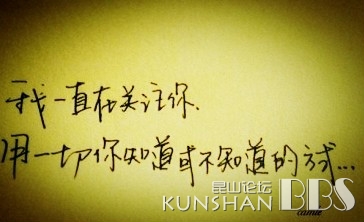 我一直在关注你.
用一切你知道或不知道的方式...
昆山论坛
KUNSHAN BBS